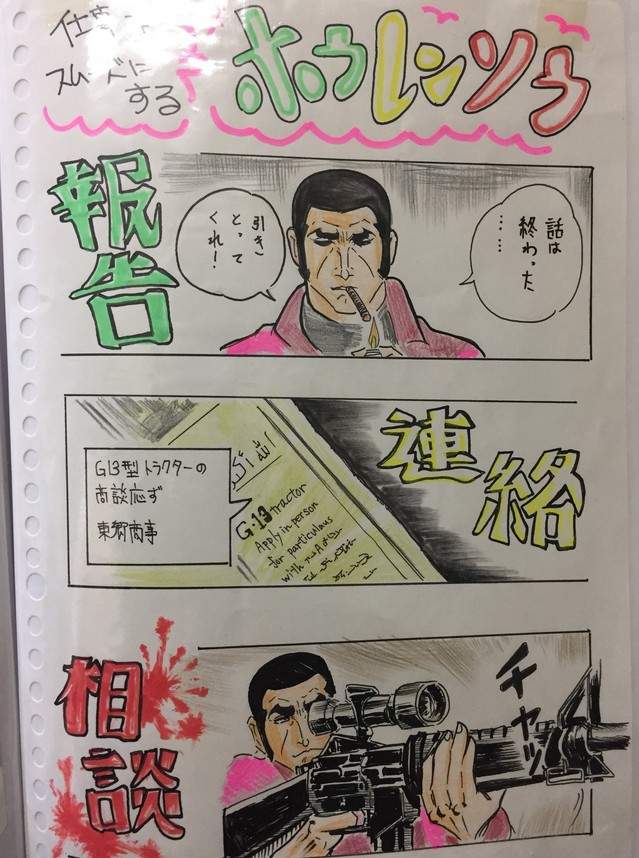 仕事
スムーズに
する
ホウレンソウ
報告
話は
終わった
……
引き
とって
くれ!
連絡
G13型トラクターの
商談応ず
東郷商事
G-13 tractor
Apply in person
for particulars
with
相談
チャッ